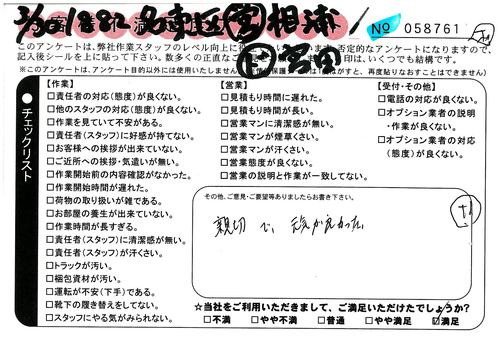 お客様不満足度
営 相浦
宮田
No 058761
このアンケートは、弊社作業スタッフのレベル向上に役
否定的なアンケートになりますので、
記入後シールを上に貼って下さい。数多くの正直な
印は、いくつでも結構です。
(※このアンケートは、アンケート目的以外には使用いたしません
がすと、再度貼りなおすことはできません)
チェックリスト
【作業】
□責任者の対応(態度)が良くない。
□他のスタッフの対応(態度)が良くない。
□作業を見ていて不安がある。
□責任者(スタッフ)に好感が持てない。
□お客様への挨拶が出来ていない。
□ご近所への挨拶・気遣いが無い。
□作業開始前の内容確認がなかった。
□作業開始時間が遅れた。
□荷物の取り扱いが雑である。
□お部屋の養生が出来ていない。
□作業時間が長すぎる。
□責任者(スタッフ)に清潔感が無い。
□責任者(スタッフ)が汗くさい。
□トラックが汚い。
□梱包資材が汚い。
□運転が不安(下手)である。
□靴下の履き替えをしてない。
□スタッフにやる気がみられない。
【営業】
□見積もり時間に遅れた。
□見積もり時間が長い。
□営業マンに清潔感が無い。
□営業マンが煙草くさい。
□営業マンが汗くさい。
□営業態度が良くない。
□営業の説明と作業が一致してない。
【受付・その他】
□電話の対応が良くない。
□オプション業者の説明
・作業が良くない。
□オプション業者の対応
(態度)が良くない。
その他、ご意見・ご要望等ありましたらお書き下さい。
親切で、元気が良かった。
☆当社をご利用いただきまして、ご満足いただけたでしょうか?
□不満 □やや不満 □普通 □やや満足 ☑満足